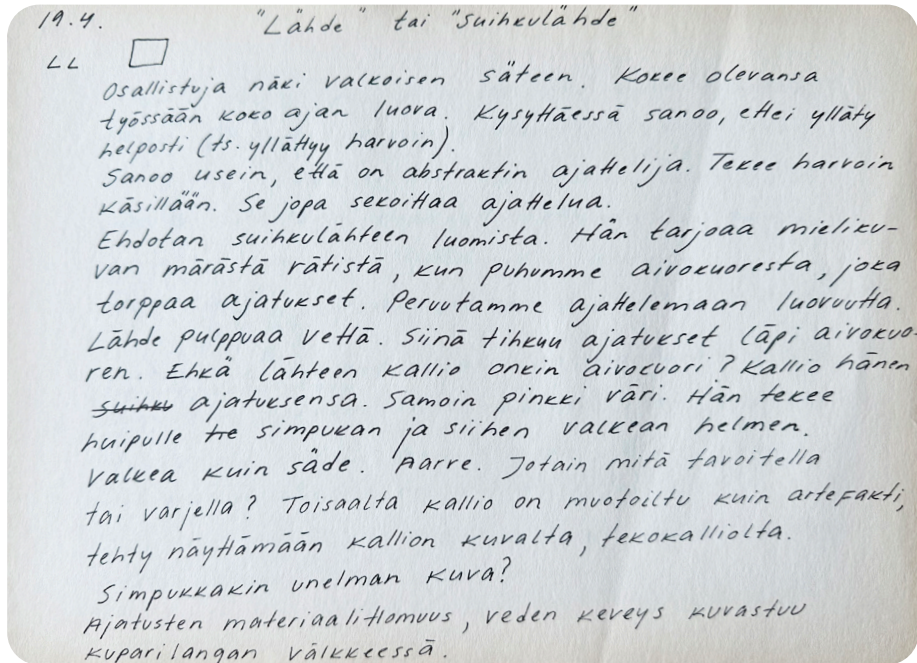 19.4. "Lähde" tai "suihkulähde"
LL
Osallistuja näki valkoisen säteen. Kokee olevansa
työssään koko ajan luova. Kysyttäessä sanoo, ettei ylläty
helposti (ts. yllättyy harvoin).
Sanoo usein, että on abstraktin ajattelija. Tekee harvoin
käsillään. Se jopa sekoittaa ajattelua.
Ehdotan suihkulähteen luomista. Hän tarjoaa mieliku-
van märästä rätistä, kun puhumme aivokuoresta, joka
torppaa ajatukset. Peruutamme ajattelemaan luovuutta.
Lähde pulppuaa vettä. Siinä tihkuu ajatukset läpi aivokuo-
ren. Ehkä lähteen kallio onkin aivokuori? Kallio hänen
suihku ajatuksensa. Samoin pinkki väri. Hän tekee
huipulle te simpukan ja siihen valkean helmen.
Valkea kuin säde. Aarre. Jotain mitä tavoitella
tai varjella? Toisaalta kallio on muotoiltu kuin artefakti,
tehty näyttämään kallion kuvalta, tekokalliolta.
Simpukkakin unelman kuva?
Ajatusten materiaalittomuus, veden keveys kuvastuu
kuparilangan välkkeessä.